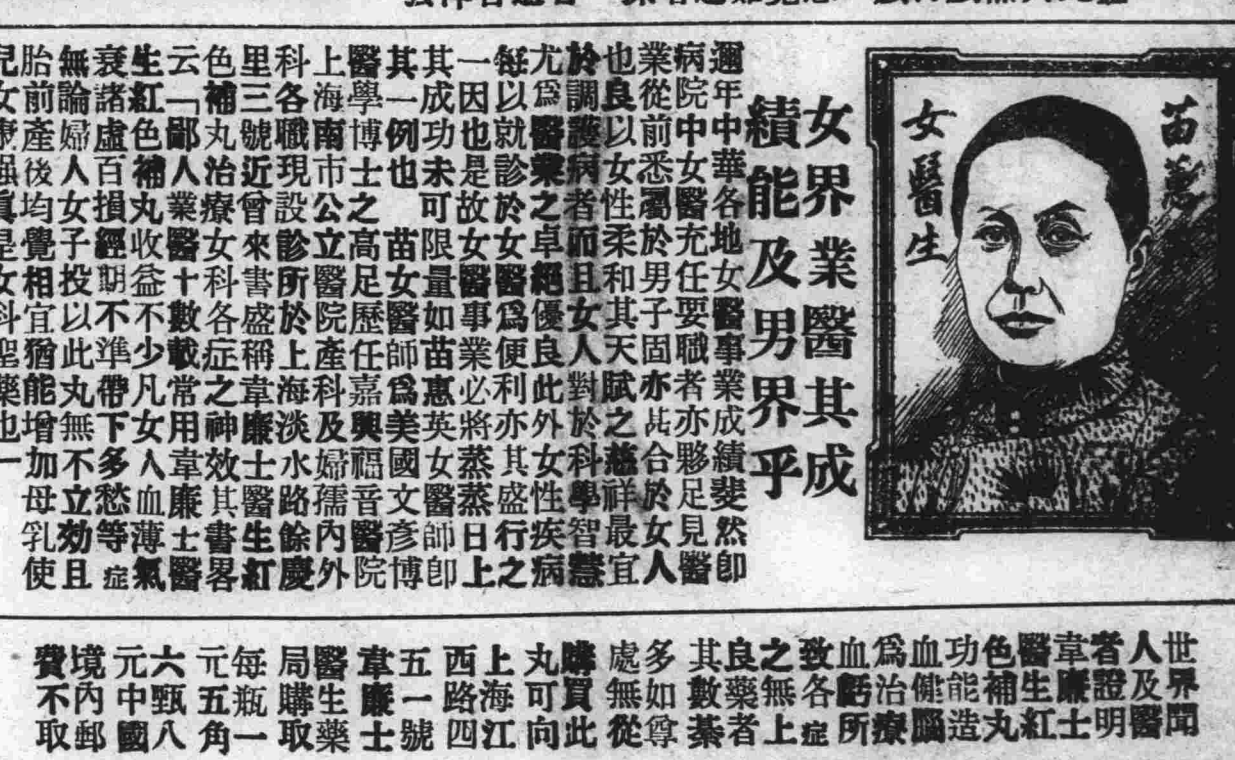 苗蕙
女醫生
女界業醫其成
績能及男界乎
邇年中華各地女醫事業成績斐然卽
病院中女醫充任要職者亦夥足見醫
業從前悉屬於男子固亦甚合於女人
也良以女性柔和其天賦之慈祥最宜
於調護病者而且女人對於科學智慧
尤爲醫業之卓絕優良此外女性疾病
每以就診於女醫爲便利亦其盛行之
一因也是故女醫事業必將蒸蒸日上
其成功未可限量如苗惠英女醫師卽
其一例也 苗女醫師爲美國文彥博
醫學博士之高足歷任嘉興福音醫院
上海南市公立醫院產科及婦孺內外
科各職現設診所於上海淡水路餘慶
里三號近曾來書盛稱韋廉士醫生紅
色補丸治療女科各症之神效其書畧
云「鄙人業醫十數載常用韋廉士醫
生紅色補丸收益不少凡女人血薄氣
衰諸虛百損經期不準帶下多愁等症
無論婦人女子投以此丸無不立効且
胎前產後均覺相宜猶能增加母乳使
兒女康强眞是女科聖藥也
世界聞
人及醫
者證明
韋廉士
醫生紅
色補丸
功能造
血健腦
爲治療
血虧所
致各症
之無上
良藥者
其數綦
多如尊
處無從
購買此
丸可向
上海江
西路四
五一號
韋廉士
醫生藥
局購取
每瓶一
元五角
六甁八
元中國
境內郵
費不取